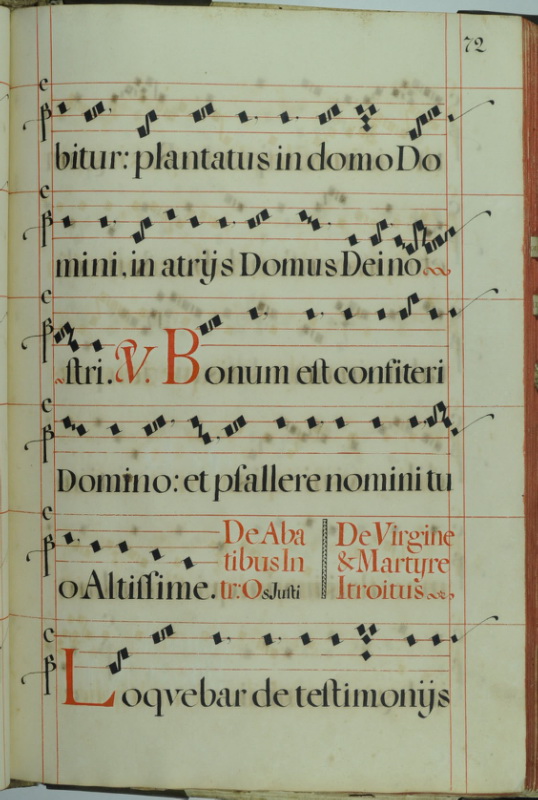 72
bitur: plantatus in domo Do
mini. in atrijs Domus Dei no
stri. V. Bonum est confiteri
Domino: et psallere nomini tu
o Altissime.
De Aba
tibus In
tr: Os Justi
De Virgine
& Martyre
Itroitus
Loqvebar de testimonijs